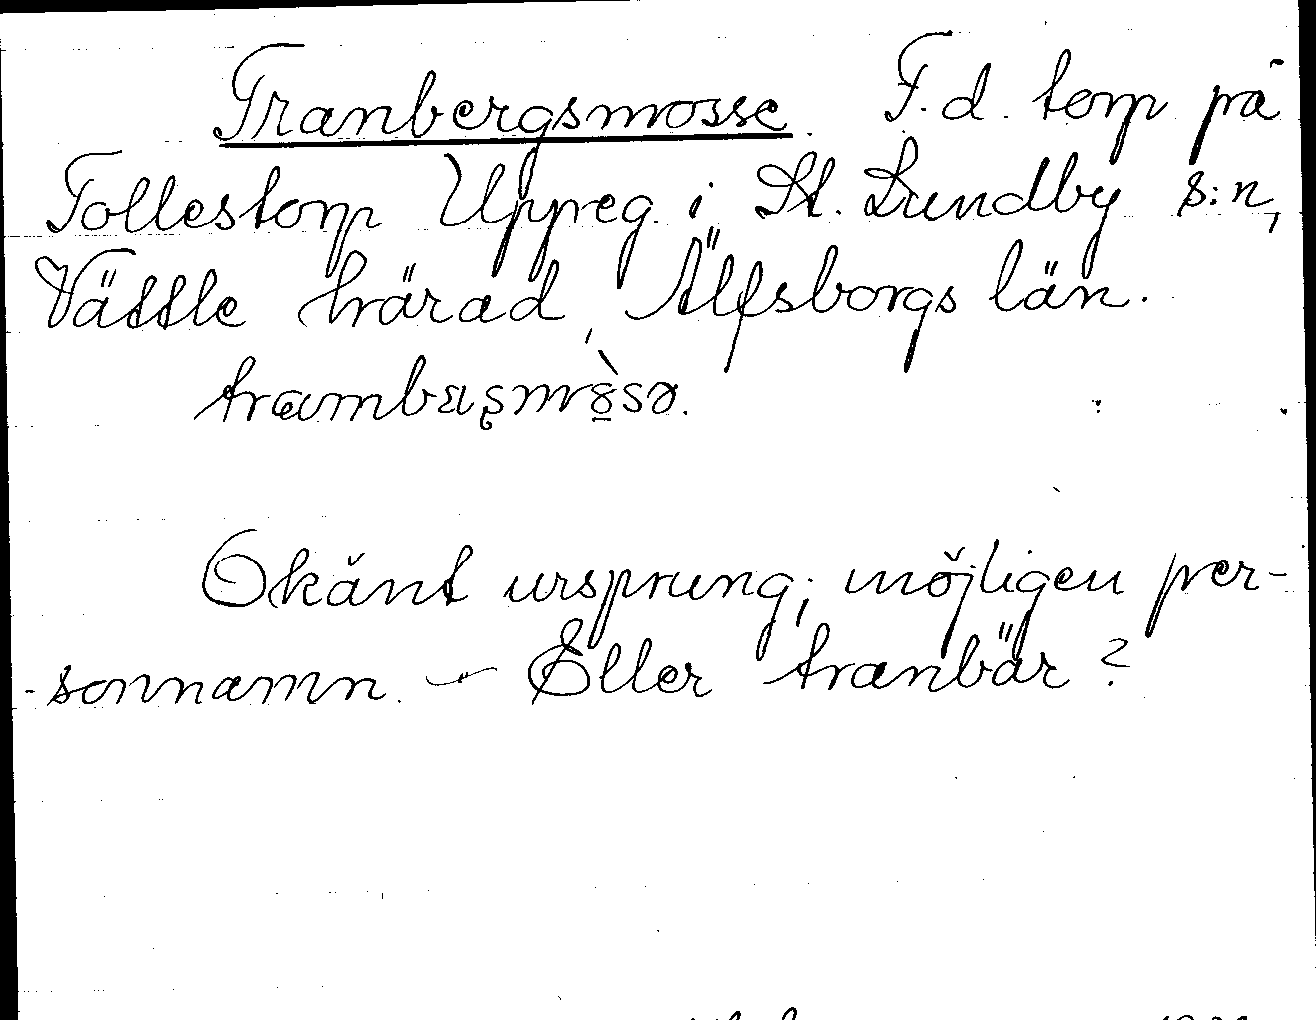 Tranbergsmosse. F.d. torp på
Tollestorp Uppeg. i St. Lundby s:n,
Vättle härad, Älfsborgs län.
Okänt ursprung; möjligen per-
sonnamn. – Eller tranbär?